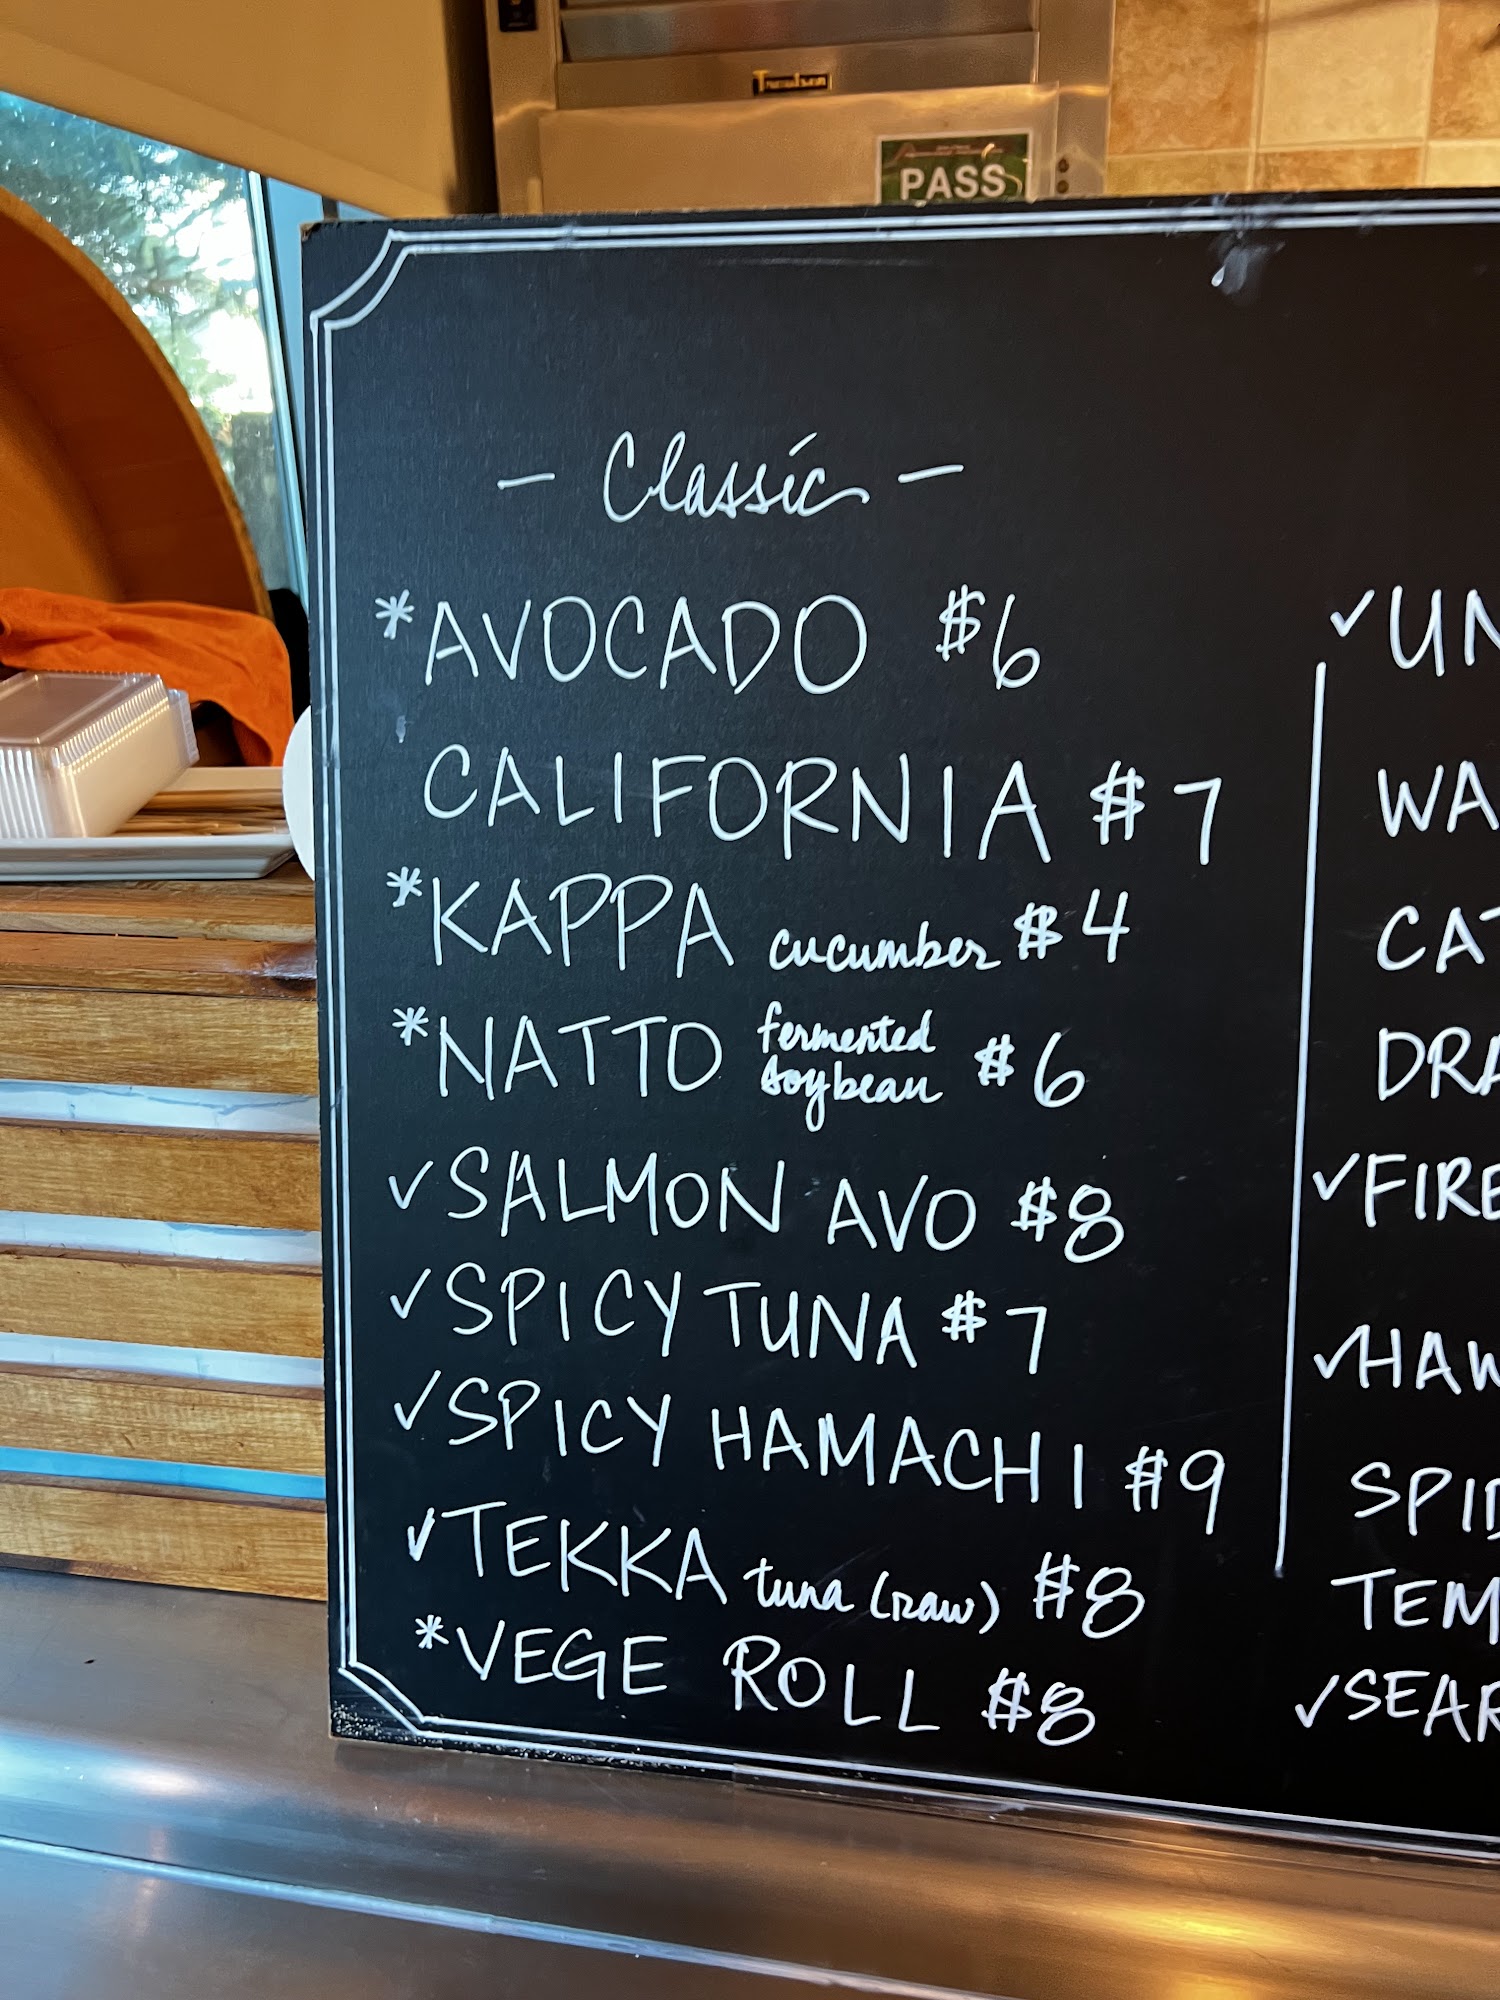 Traulsen
PASS
- Classic -
*AVOCADO $6
CALIFORNIA $7
*KAPPA cucumber $4
*NATTO fermented soybean $6
✓SALMON AVO $8
✓SPICY TUNA $7
✓SPICY HAMACHI $9
✓TEKKA tuna (raw) $8
*VEGE ROLL $8
✓UN
WA
CAT
DRA
✓FIRE
✓HAW
SPID
TEM
✓SEAR